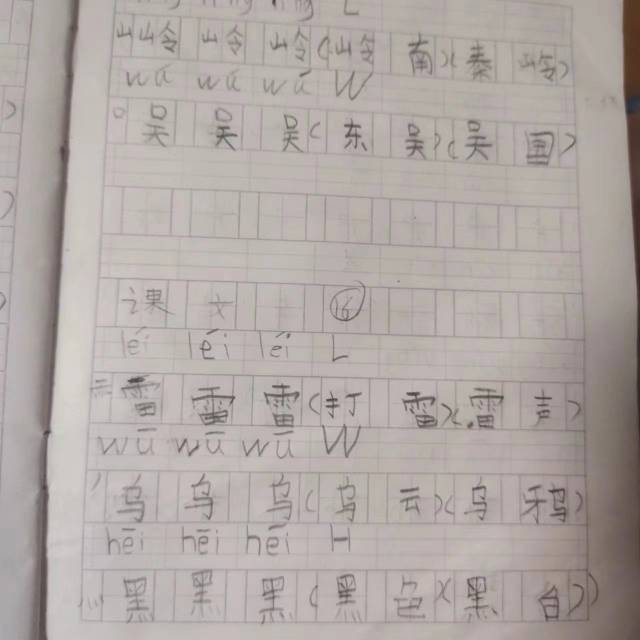 山岭 岭 岭(岭南)(秦岭)
wú wú wú W
口 吴 吴 吴(东吴)(吴国)
课文 ⑥
léi léi léi L
雷 雷 雷(打雷)(雷声)
wū wū wū W
丿 乌 乌 乌(乌云)(乌鸦)
hēi hēi hēi H
灬 黑 黑 黑(黑色)(黑白)